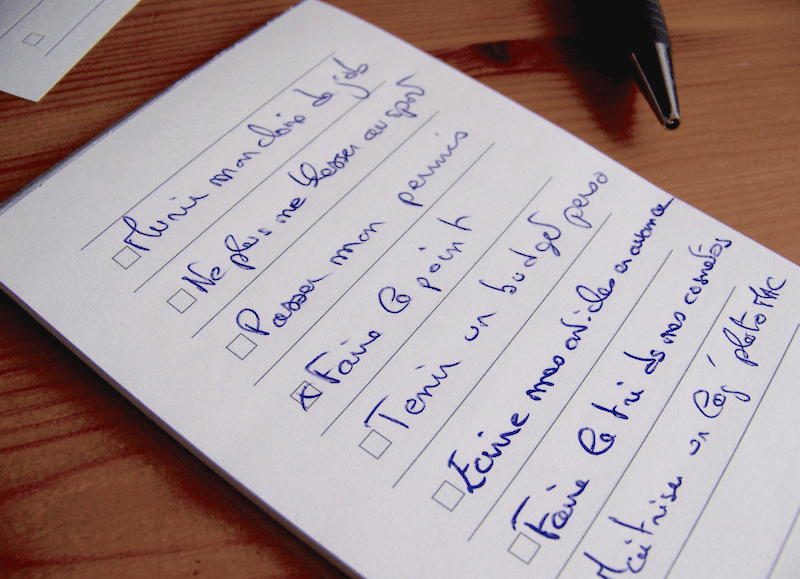 Murir mon choix de job
Ne plus me blesser au sport
Passer mon permis
Faire le point
Tenir un budget perso
Ecrire mes articles en avance
Faire le tri de mes
Maitriser un photo